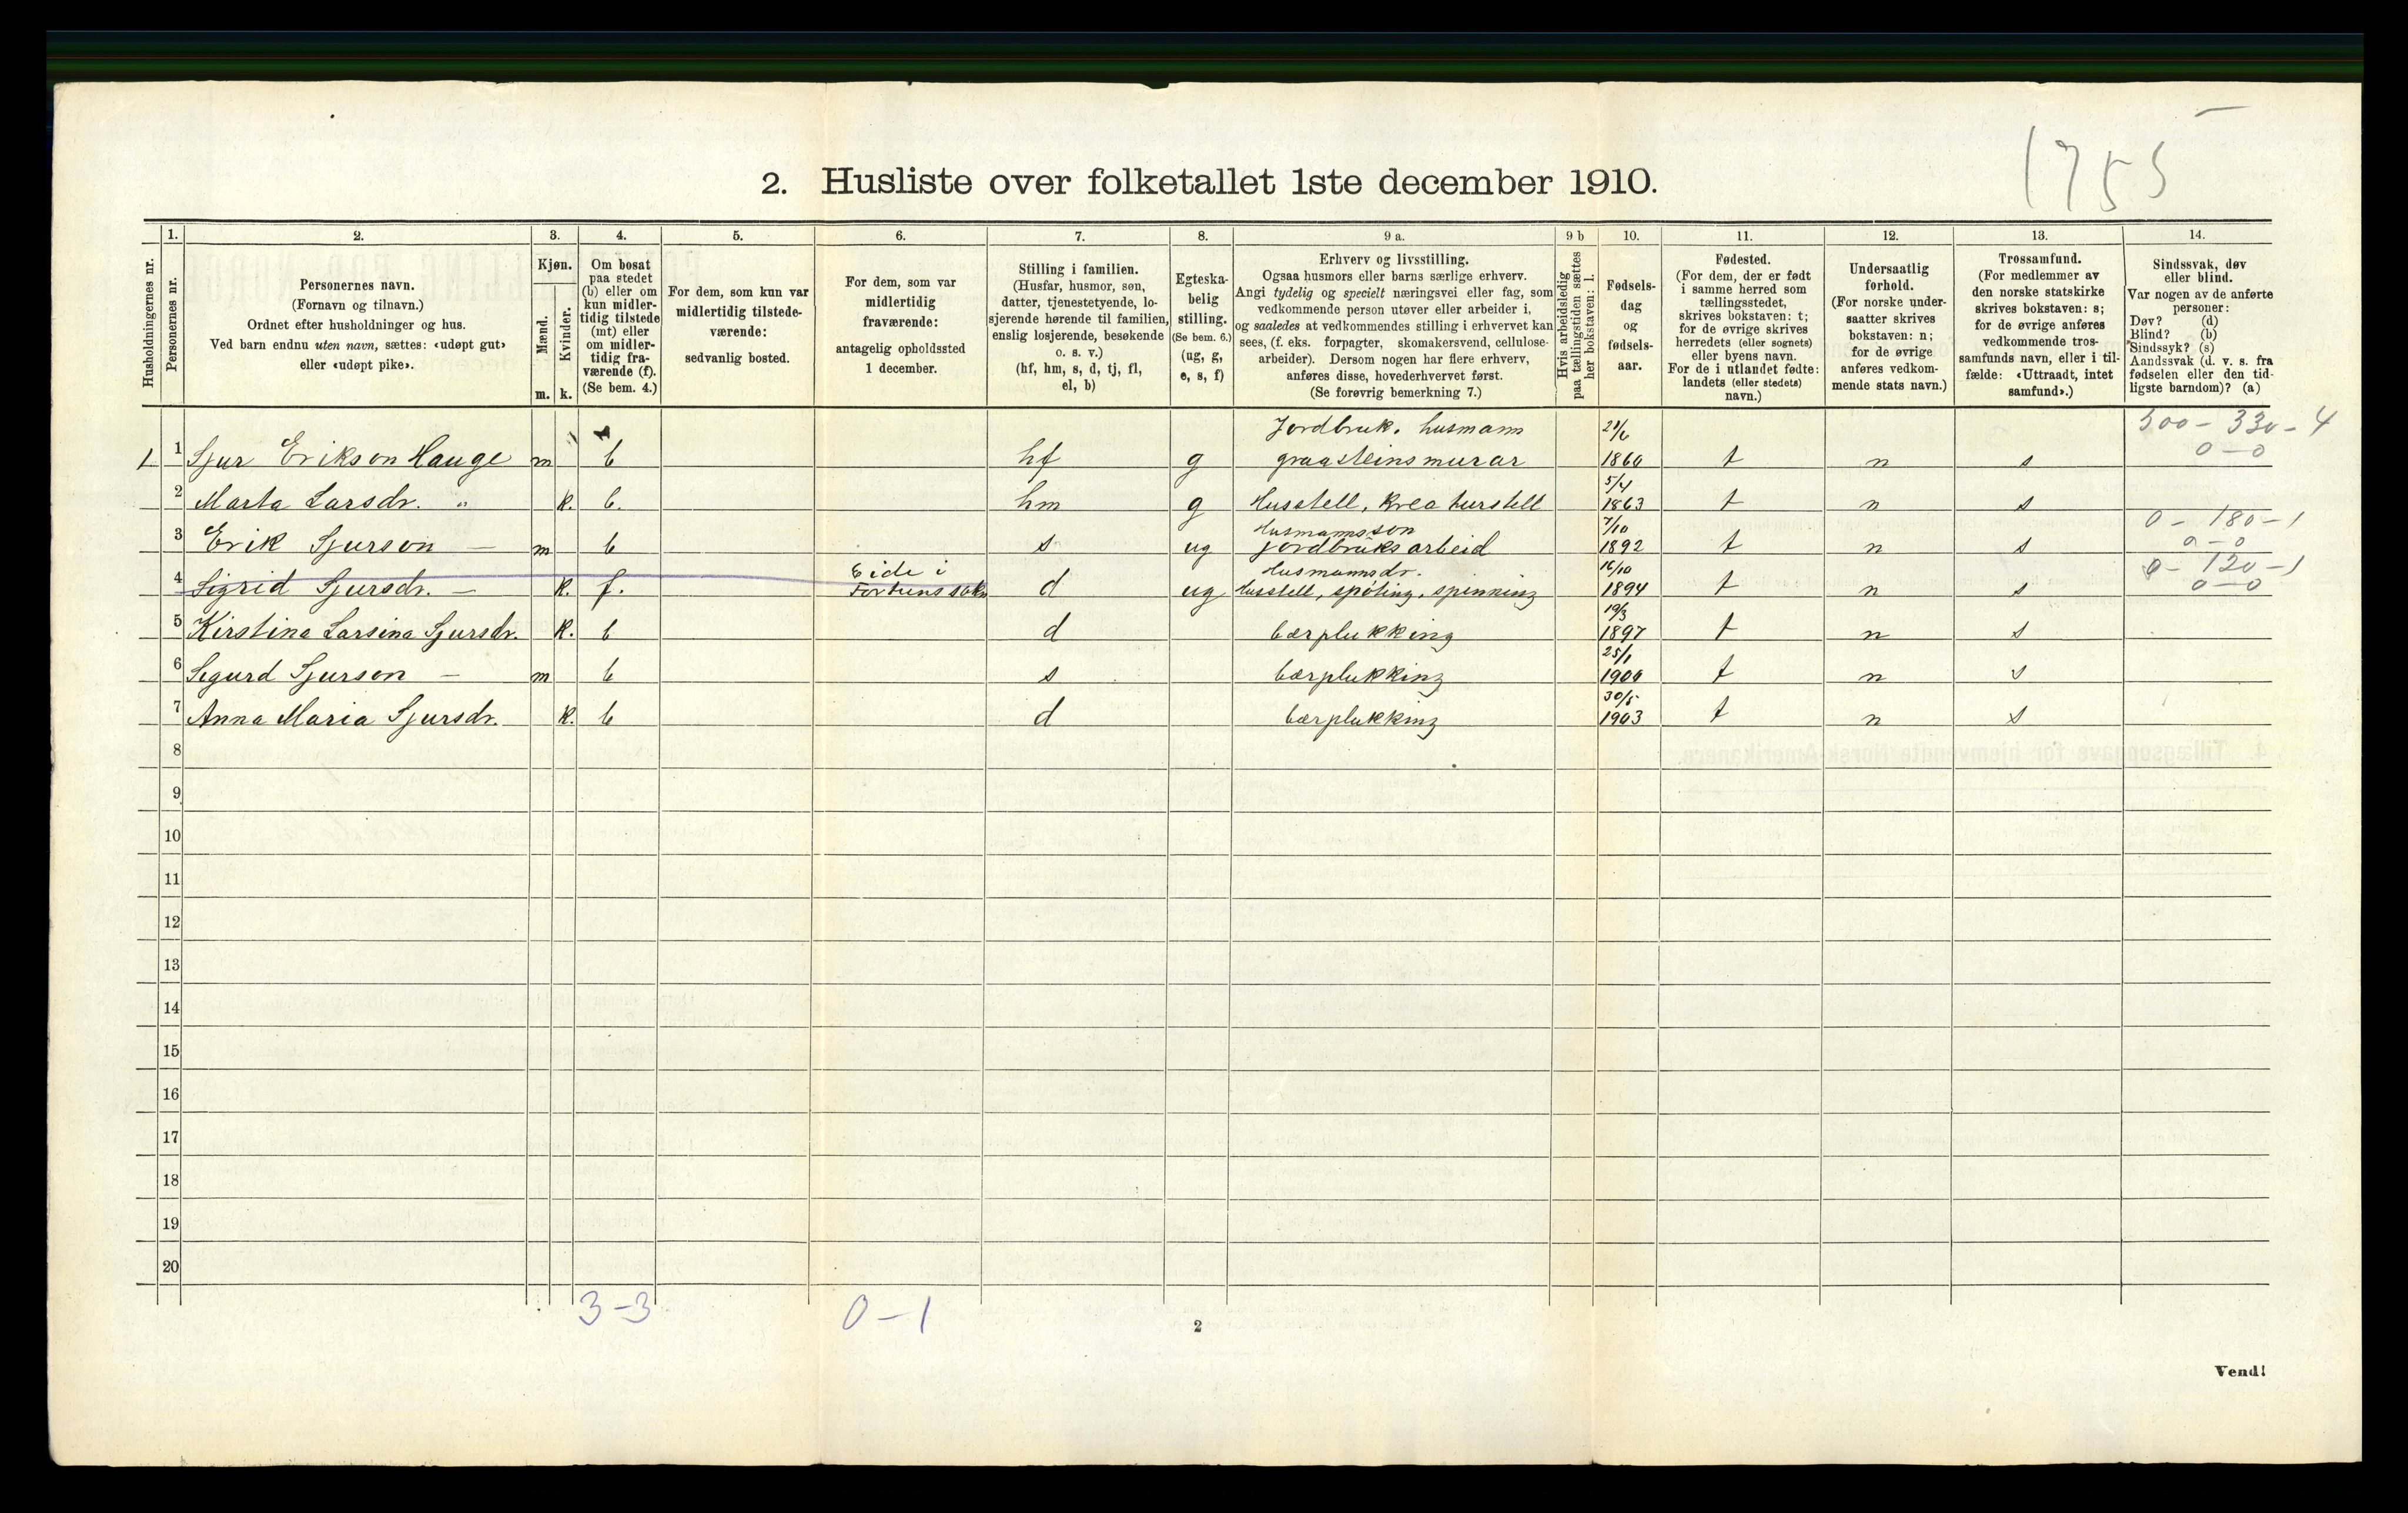 1755
2. Husliste over folketallet 1ste december 1910.
Husholdningernes nr.
1.
Personernes nr.
2.
Personernes navn.
(Fornavn og tilnavn.)
Ordnet efter husholdninger og hus.
Ved barn endnu uten navn, sættes: «udøpt gut»
eller «udøpt pike».
3.
Kjøn.
Mænd.
Kvinder.
m. k.
4.
Om bosat
paa stedet
(b) eller om
kun midler-
tidig tilstede
(mt) eller
om midler-
tidig fra-
værende (f).
(Se bem. 4.)
5.
For dem, som kun var
midlertidig tilstede-
værende:
sedvanlig bosted.
6.
For dem, som var
midlertidig
fraværende:
antagelig opholdssted
1 december.
7.
Stilling i familien.
(Husfar, husmor, søn,
datter, tjenestetyende, lo-
sjerende hørende til familien,
enslig losjerende, besøkende
o. s. v.)
(hf, hm, s, d, tj, fl,
el, b)
8.
Egteska-
belig
stilling.
(Se bem. 6.)
(ug, g,
e, s, f)
9 a.
Erhverv og livsstilling.
Ogsaa husmors eller barns særlige erhverv.
Angi tydelig og specielt næringsvei eller fag, som
vedkommende person utøver eller arbeider i,
og saaledes at vedkommendes stilling i erhvervet kan
sees, (f. eks. forpagter, skomakersvend, cellulose-
arbeider). Dersom nogen har flere erhverv,
anføres disse, hovederhvervet først.
(Se forøvrig bemerkning 7.)
9 b
Hvis arbeidsledig
paa tællingstiden sættes
her bokstaven: l.
10.
Fødsels-
dag
og
fødsels-
aar.
11.
Fødested.
(For dem, der er født
i samme herred som
tællingsstedet,
skrives bokstaven: t;
for de øvrige skrives
herredets (eller sognets)
eller byens navn.
For de i utlandet fødte:
landets (eller stedets)
navn.)
12.
Undersaatlig
forhold.
(For norske under-
saatter skrives
bokstaven: n;
for de øvrige
anføres vedkom-
mende stats navn.)
13.
Trossamfund.
(For medlemmer av
den norske statskirke
skrives bokstaven: s;
for de øvrige anføres
vedkommende tros-
samfunds navn, eller i til-
fælde: «Uttraadt, intet
samfund».)
14.
Sindssvak, døv
eller blind.
Var nogen av de anførte
personer:
Døv? (d)
Blind? (b)
Sindssyk? (s)
Aandssvak (d. v. s. fra
fødselen eller den tid-
ligste barndom)? (a)
Jordbruk. husmann 21/6 500 - 330 - 4
1 1 Sjur Erikson Hauge m b hf g graasteinsmurar 1860 t n s 0 - 0
5/4
2 Marta Larsdr. " k. b. hm g Husstell, kreaturstell 1863 t n s
Husmannsson 7/10 0 - 180 - 1
3 Erik Sjurson — m b s ug jordbruksarbeid 1892 t n s 0 - 0
Eide i Husmannsdr. 16/10 0 - 120 - 1
4 Sigrid Sjursdr. — k. f. Fortunssokn d ug Husstell, spöting, spinning 1894 t n s 0 - 0
19/3
5 Kirstina Larsina Sjursdr. k. b d bærplukking 1897 t n s
25/1
6 Sigurd Sjurson — m b s bærplukking 1900 t n s
30/5
7 Anna Maria Sjursdr. k. b d bærplukking 1903 t n s
8
9
10
11
12
13
14
15
16
17
18
19
20
3 - 3 0 - 1
2
Vend!